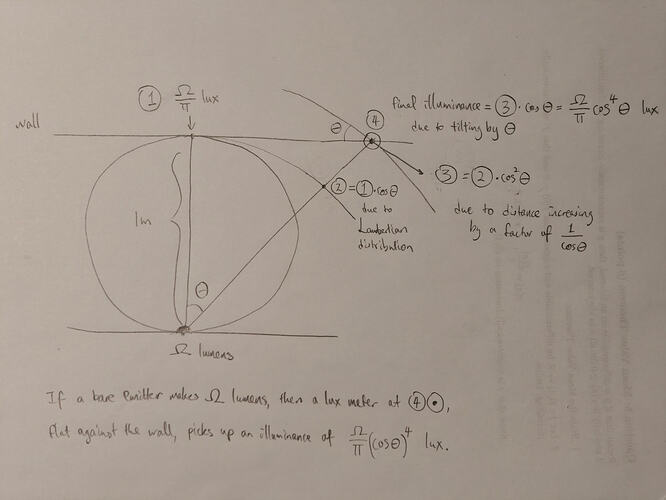 ① Ω/π lux
wall
θ
④
final illuminance = ③ · cos θ = Ω/π cos⁴ θ lux
due to tilting by θ
② = ① · cos θ
due to
Lambertian
distribution
③ = ② · cos² θ
due to distance increasing
by a factor of 1/cosθ
1m
θ
Ω lumens
If a bare emitter makes Ω lumens, then a lux meter at ④⊙,
flat against the wall, picks up an illuminance of Ω/π (cos θ)⁴ lux.